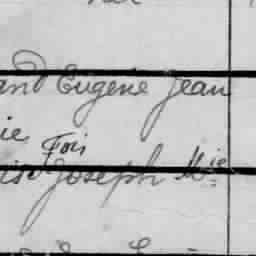 and Eugène Jean
ie
Fois
Joseph Mie